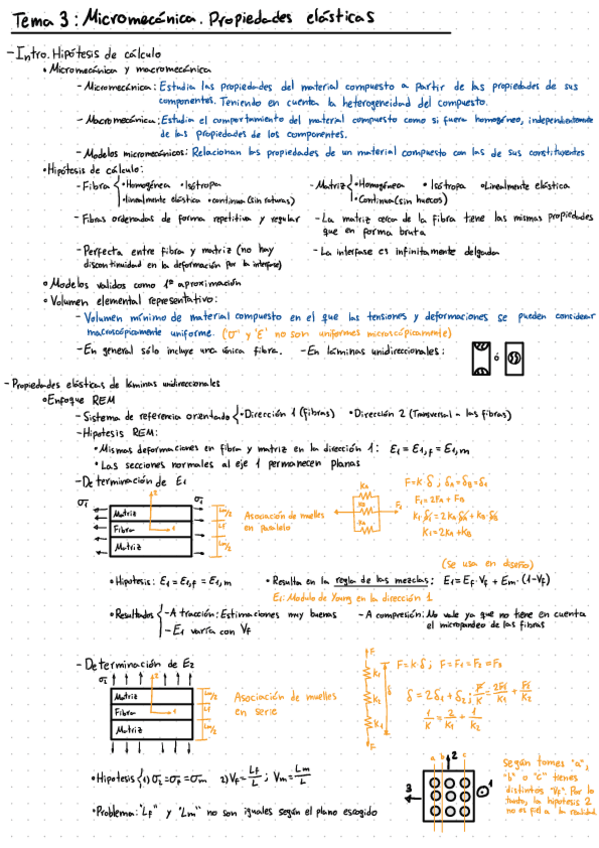 Tema 3: Micromecánica. Propiedades elásticas
- Intro. Hipótesis de cálculo
• Micromecánica y macromecánica
- Micromecánica: Estudia las propiedades del material compuesto a partir de las propiedades de sus
componentes. Teniendo en cuenta la heterogeneidad del compuesto.
- Macromecánica: Estudia el comportamiento del material compuesto como si fuera homogéneo, independientemente
de las propiedades de los componentes.
- Modelos micromecánicos: Relacionan las propiedades de un material compuesto con las de sus constituyentes
• Hipótesis de cálculo:
- Fibra { • Homogénea • Isótropa
• linealmente elástica • continua (sin roturas)
- Matriz { • Homogénea • Isótropa • Linealmente elástica
• Continua (sin huecos)
- Fibras ordenadas de forma repetitiva y regular
- La matriz cerca de la fibra tiene las mismas propiedades
que en forma bruta
- Perfecta entre fibra y matriz (no hay
discontinuidad en la deformación por la interfase)
- La interfase es infinitamente delgada
• Modelos validos como 1ª aproximación
• Volumen elemental representativo:
- Volumen mínimo de material compuesto en el que las tensiones y deformaciones se pueden considerar
macroscópicamente uniforme. ('σ' y 'ε' no son uniformes microscópicamente)
- En general sólo incluye una única fibra. - En láminas unidireccionales: ó
- Propiedades elásticas de láminas unidireccionales
• Enfoque REM
- Sistema de referencia orientado { • Dirección 1 (Fibras) • Dirección 2 (Transversal a las fibras)
- Hipotesis REM:
• Mismas deformaciones en fibra y matriz en la dirección 1: ε1 = ε1,f = ε1,m
• Las secciones normales al eje 1 permanecen planas
- Determinación de E1
σ1 2 σ1
Matriz Lm/2
Fibra 1 Lf
Matriz Lm/2
Asociación de muelles
en paralelo
KA
KB
KA
F1
F=k δ ; δA=δB=δ1
F1=2FA+FB
K1 δ1=2KA δ1+KB δ1
K1=2KA+KB
(se usa en diseño)
• Hipotesis: ε1 = ε1,f = ε1,m
• Resulta en la regla de las mezclas: E1=Ef·Vf+Em·(1-Vf)
E1: Modulo de Young en la dirección 1
• Resultados { - A tracción: Estimaciones muy buenas
- E1 varía con Vf
- A compresión: No vale ya que no tiene en cuenta
el micropandeo de las fibras
- Determinación de E2
σ2 2
Matriz Lm/2
Fibra 1 Lf
Matriz Lm/2
Asociación de muelles
en serie
F
K1
K2
K1
δ
F
F=k δ ; F=F1=F2=F3
δ=2δ1+δ2 ; F/K = 2F1/K1 + F2/K2
1/K = 2/K1 + 1/K2
• Hipotesis { 1) σ2=σf=σm 2) Vf=Lf/L ; Vm=Lm/L
• Problema: "Lf" y "Lm" no son iguales según el plano escogido
a b c
2
3
1
Según tomes "a",
"b" o "c" tienes
distintos "Vf". Por lo
tanto, la hipotesis 2
no es fiel a la realidad.